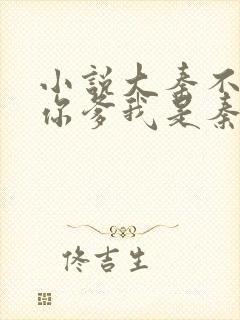 小说大秦不
你爹我是秦
佟吉生